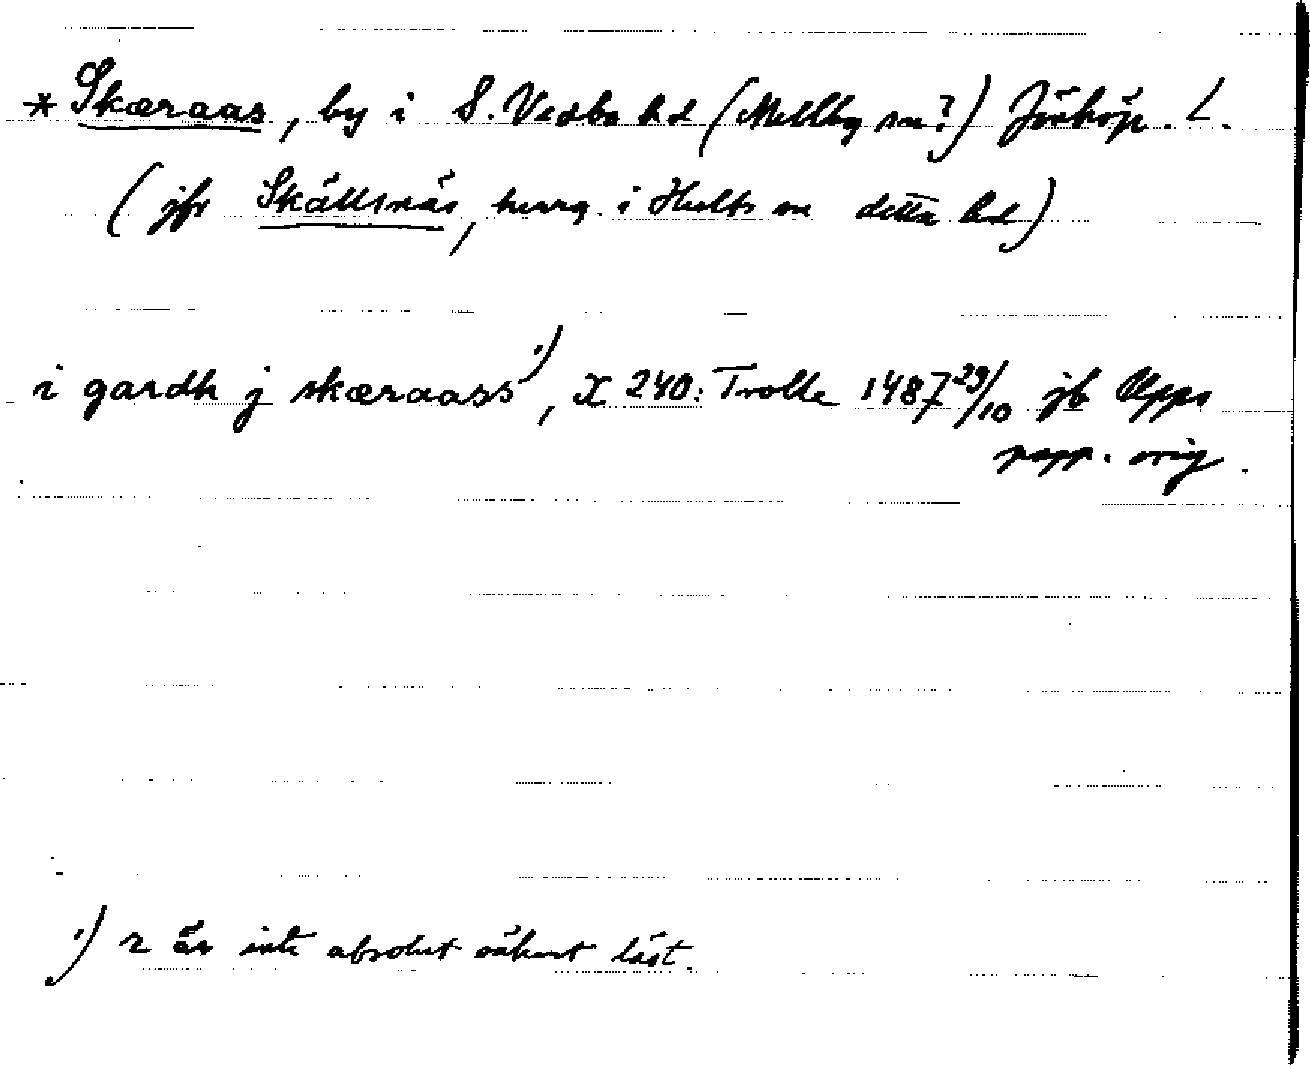 * Skæraas, by i S. Vedbo hd (Mellby sn?) Jönköp. L.
(jfr Skällsnäs, herrg. i Hults sn detta hd)
i gardh j skæraass ¹), X 240: Trolle 1487 29/10 jb Upps
papp. orig.
¹) r är inte absolut säkert läst.